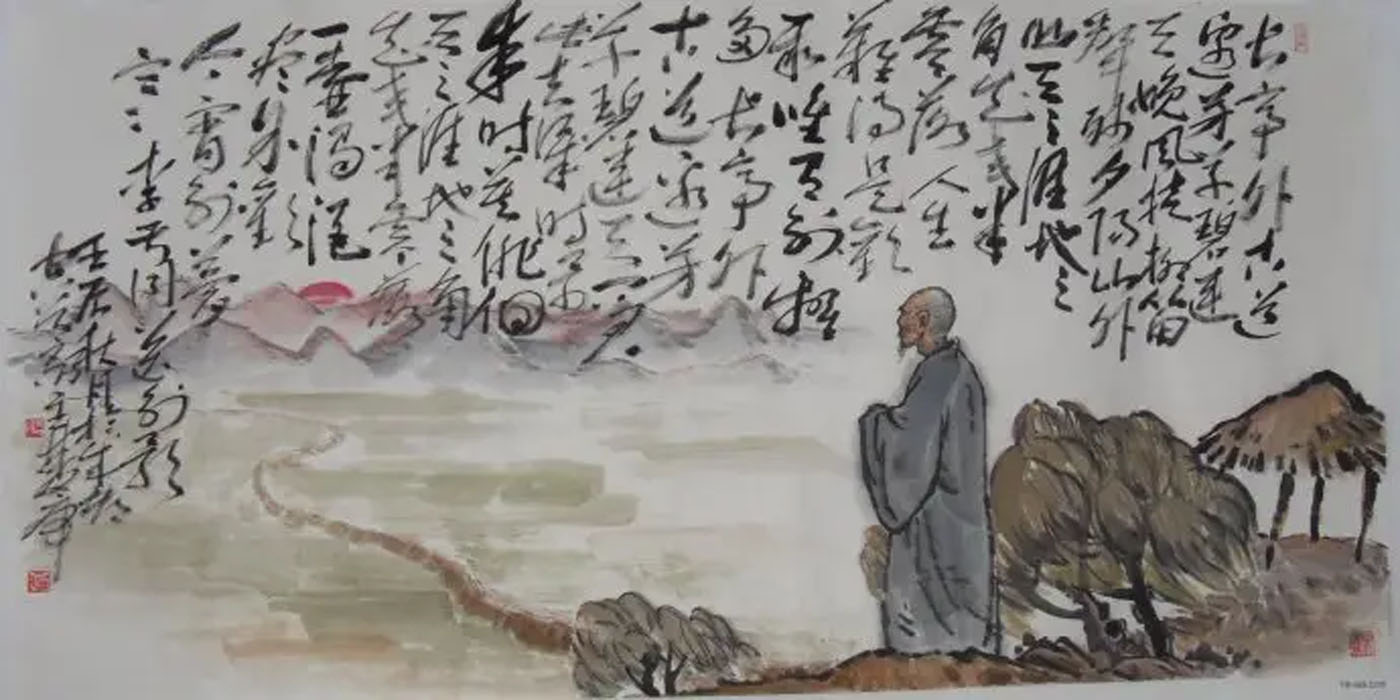 长亭外古道
边芳草碧连
天晚风拂柳笛
声残夕阳山外
山天之涯地之
角知交半
零落人生
难得是欢
聚唯有别離
多长亭外
古道边芳
草碧连天问君
此去几时
来时莫徘徊
天之涯地之角
知交半零落
一壶浊酒
尽余欢
今宵别梦
寒 李叔同送别歌
壬辰秋月於